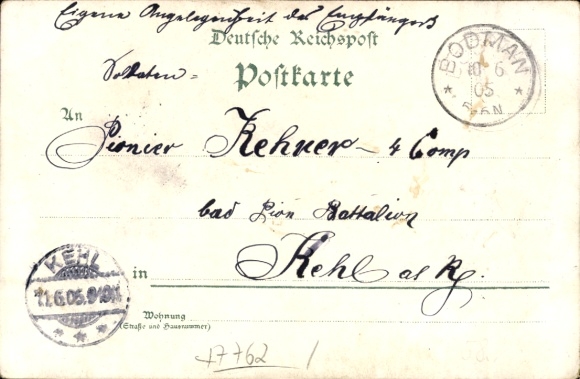 Eigene Angelegenheit des Empfängers
Deutsche Reichspost
Soldaten =
Postkarte
BODMAN
10 6
05
5-6N
An
Pionier Kehrer – 4 Comp
bad Pion Battalion
in Kehl a/ R.
KEHL
11.6.05.
Wohnung
(Straße und Hausnummer)
17762 /